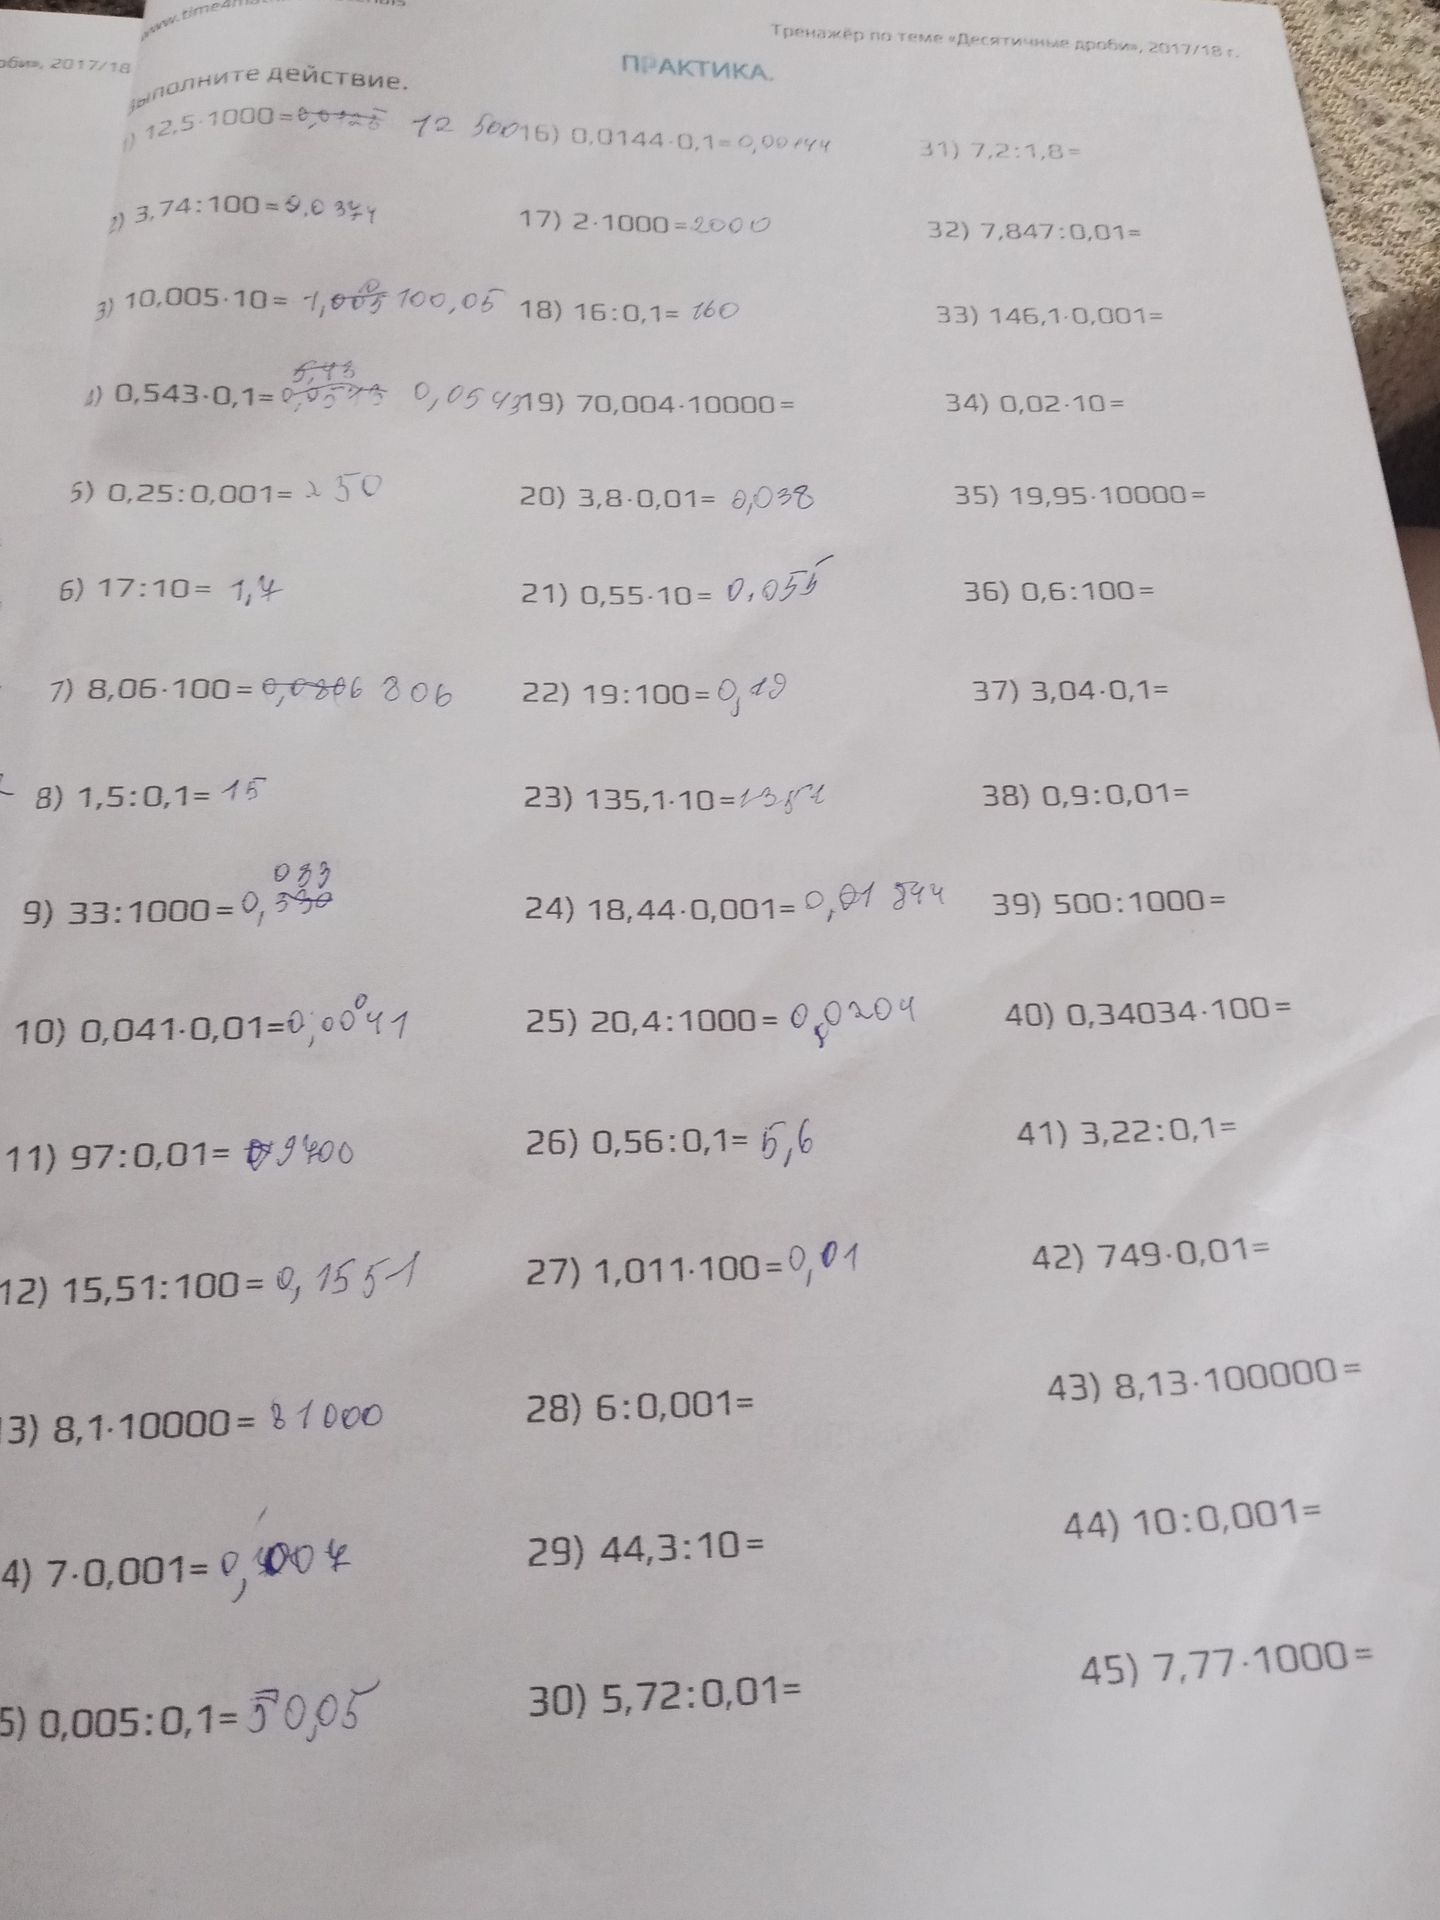 Тренажёр по теме «Десятичные дроби», 2017/18 г.
2017/18
ПРАКТИКА.
Выполните действие.
1) 12,5·1000= 0,0125 12 500
2) 3,74:100=0,0374
3) 10,005·10= 1,005 100,05
4) 0,543·0,1= 5,43 0,0543 0,0543
5) 0,25:0,001= 250
6) 17:10= 1,7
7) 8,06·100=0,0806 806
8) 1,5:0,1= 15
9) 33:1000=0,330 033
10) 0,041·0,01=0,00041
11) 97:0,01= 9700
12) 15,51:100= 0,1551
13) 8,1·10000= 81000
4) 7·0,001= 0,007
5) 0,005:0,1= 50,05
16) 0,0144·0,1=0,00144
17) 2·1000=2000
18) 16:0,1= 160
19) 70,004·10000=
20) 3,8·0,01= 0,038
21) 0,55·10= 0,055
22) 19:100=0,19
23) 135,1·10=1351
24) 18,44·0,001= 0,01844
25) 20,4:1000= 0,0204
26) 0,56:0,1= 5,6
27) 1,011·100=0,01
28) 6:0,001=
29) 44,3:10=
30) 5,72:0,01=
31) 7,2:1,8=
32) 7,847:0,01=
33) 146,1·0,001=
34) 0,02·10=
35) 19,95·10000=
36) 0,6:100=
37) 3,04·0,1=
38) 0,9:0,01=
39) 500:1000=
40) 0,34034·100=
41) 3,22:0,1=
42) 749·0,01=
43) 8,13·100000=
44) 10:0,001=
45) 7,77·1000=